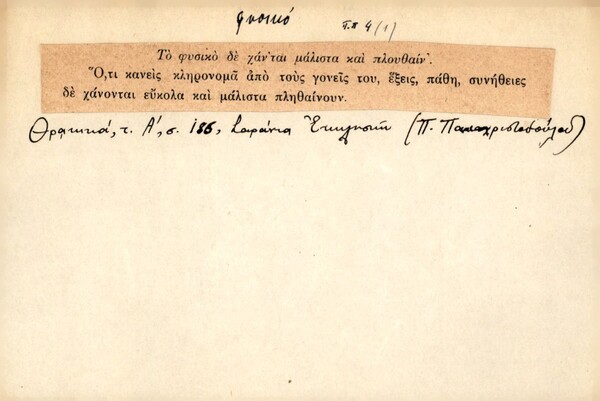 φυσικό
Τὸ φυσικὸ δὲ χάν'ται μάλιστα καὶ πλουθαίν'.
Ὅ,τι κανεὶς κληρονομᾶ ἀπὸ τοὺς γονεῖς του, ἕξεις, πάθη, συνήθειες
δὲ χάνονται εὔκολα καὶ μάλιστα πληθαίνουν.
Θρακικά, τ. Α', σ. 186, Σαράντα Ἐκκλησιῶν (Π. Παπαχριστοδούλου)